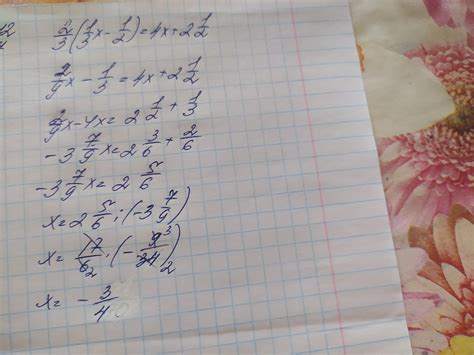 2/3(1/3x-1/2)=4x+2 1/2
2/9x-1/3=4x+2 1/2
2/9x-4x=2 1/2+1/3
-3 7/9x=2 3/6+2/6
-3 7/9x=2 5/6
x=2 5/6:(-3 7/9)
x=17/6 2·(-9 3/34 2)
x=-3/4